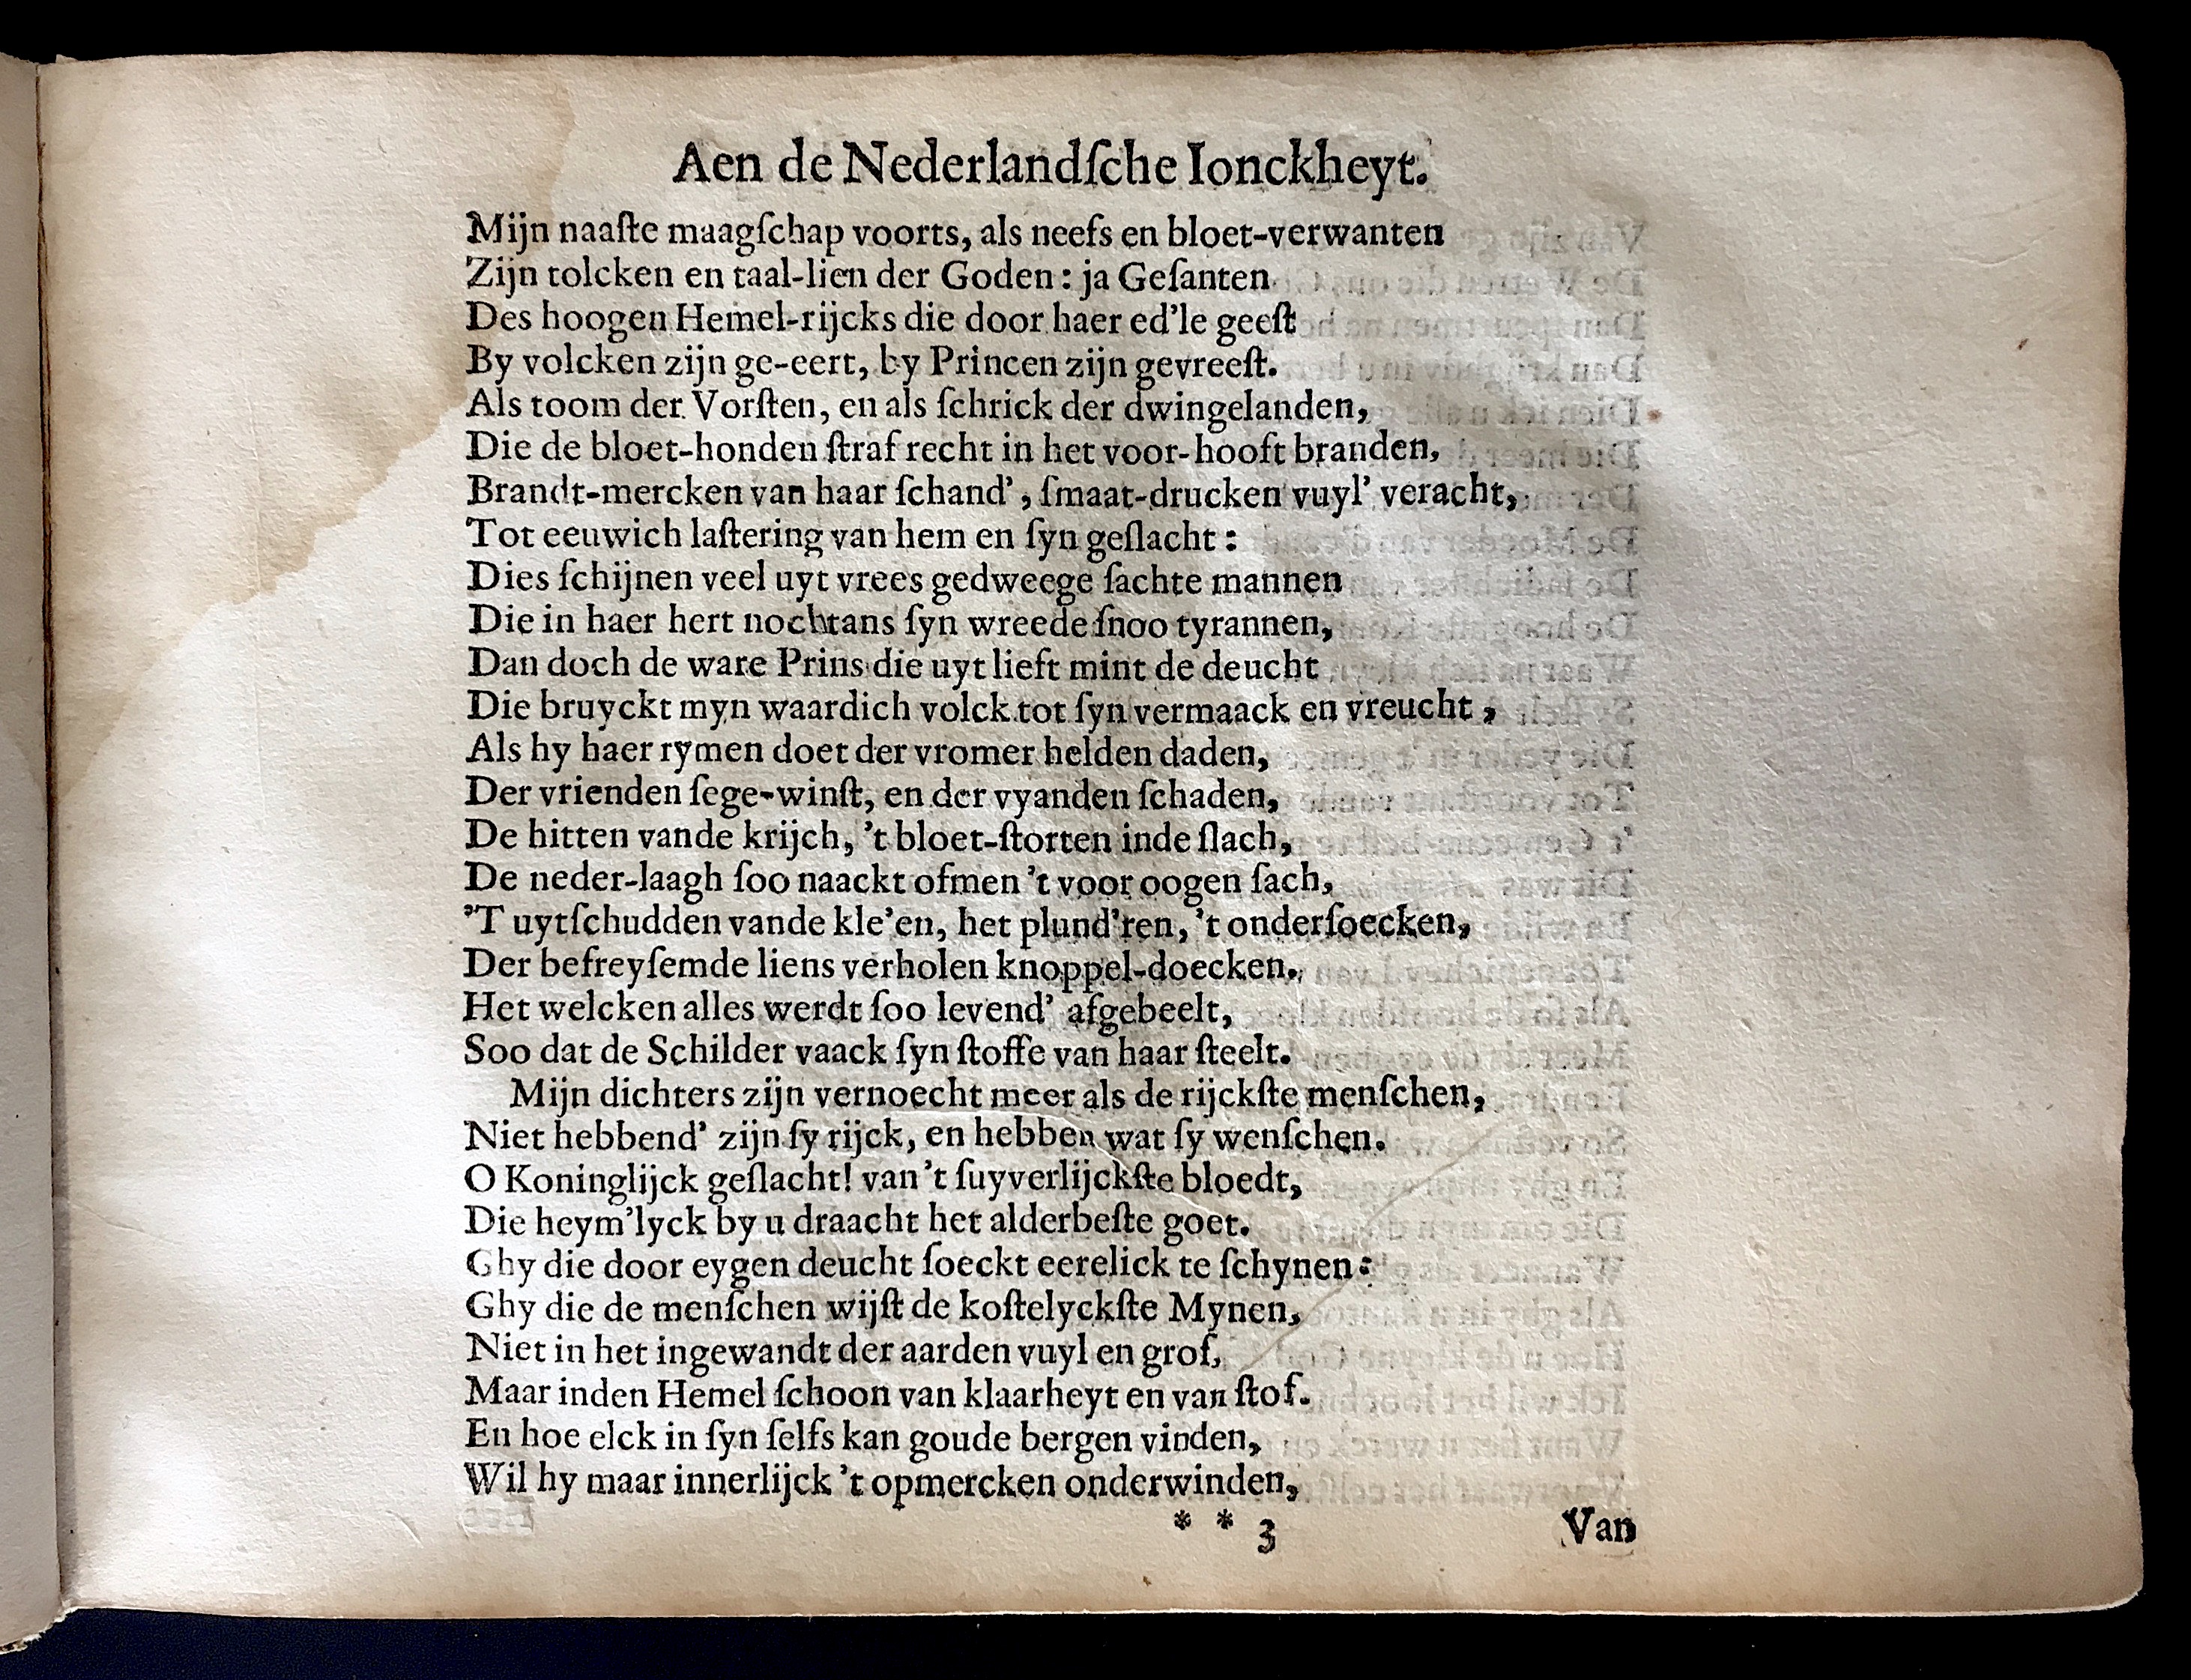 Aen de Nederlandſche Ionckheyt.
Mijn naaſte maagſchap voorts, als neefs en bloet-verwanten
Zijn tolcken en taal-lien der Goden: ja Geſanten
Des hoogen Hemel-rijcks die door haer ed'le geeſt
By volcken zijn ge-eert, by Princen zijn gevreeſt.
Als toom der Vorſten, en als ſchrick der dwingelanden,
Die de bloet-honden ſtraf recht in het voor-hooft branden,
Brandt-mercken van haar ſchand', ſmaat-drucken vuyl' veracht,
Tot eeuwich laſtering van hem en ſyn geſlacht:
Dies ſchijnen veel uyt vrees gedweege ſachte mannen
Die in haer hert nochtans ſyn wreede ſnoo tyrannen,
Dan doch de ware Prins die uyt lieft mint de deucht
Die bruyckt myn waardich volck tot ſyn vermaack en vreucht,
Als hy haer rymen doet der vromer helden daden,
Der vrienden ſege-winſt, en der vyanden ſchaden,
De hitten vande krijch, 't bloet-ſtorten inde ſlach,
De neder-laagh ſoo naackt ofmen 't voor oogen ſach,
'T uytſchudden vande kle'en, het plund'ren, 't onderſoecken,
Der befreyſemde liens verholen knoppel-doecken.
Het welcken alles werdt ſoo levend' afgebeelt,
Soo dat de Schilder vaack ſyn ſtoffe van haar ſteelt.
Mijn dichters zijn vernoecht meer als de rijckſte menſchen,
Niet hebbend' zijn ſy rijck, en hebben wat ſy wenſchen.
O Koninglijck geſlacht! van 't ſuyverlijckſte bloedt,
Die heym'lyck by u draacht het alderbeſte goet.
Ghy die door eygen deucht ſoeckt eerelick te ſchynen:
Ghy die de menſchen wijſt de koſtelyckſte Mynen,
Niet in het ingewandt der aarden vuyl en grof,
Maar inden Hemel ſchoon van klaarheyt en van ſtof.
En hoe elck in ſyn ſelfs kan goude bergen vinden,
Wil hy maar innerlijck 't opmercken onderwinden,
* * 3 Van